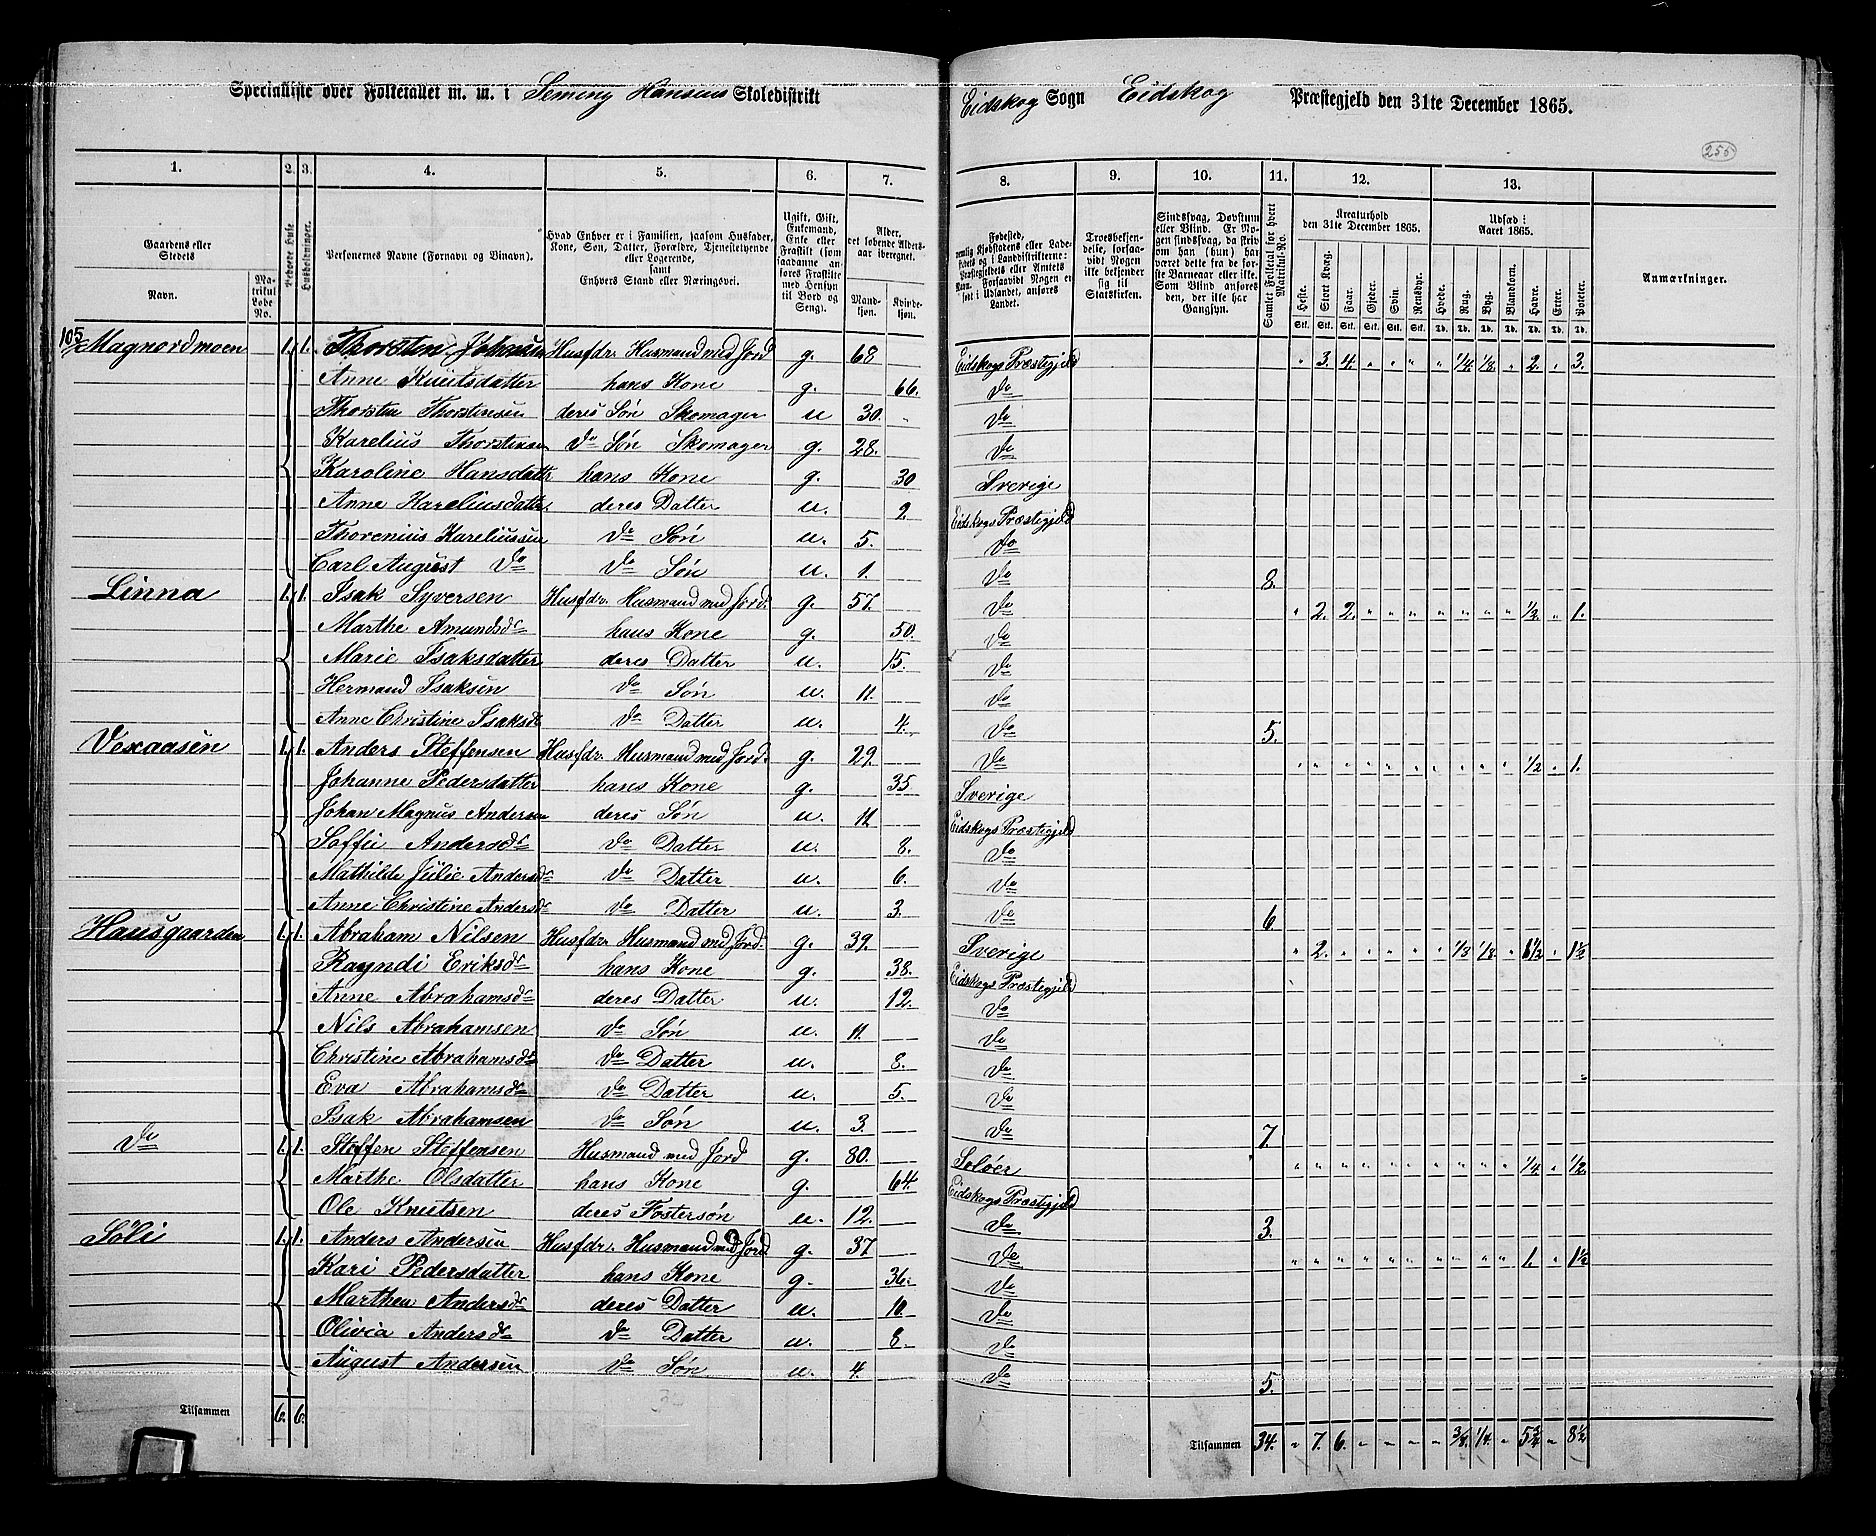 Specialliste over Folketallet m. m. i Seming Hansens Skoledistrikt
Eidskog Sogn Eidskog Præstegjeld den 31te December 1865.
255
1. 2. 3. 4. 5. 6. 7. 8. 9. 10. 11. 12. 13.
Gaardens eller Stedets
Navn.
Matrikul Løbe No.
Beboede Huse
Husholdninger.
Personernes Navne (Fornavn og Binavn).
Hvad Enhver er i Familien, saasom Husfader, Kone, Søn, Datter, Forældre, Tjenestetyende eller Logerende, samt Enhvers Stand eller Næringsvei.
Ugift, Gift, Enkemand, Enke eller Fraskilt (som saadanne anføres Fraskilte med Hensyn til Bord og Seng).
Alder, det løbende Aldersaar iberegnet.
Mandkjøn. Kvindekjøn.
Fødested,
Troesbekjendelse, forsaavidt Nogen ikke bekjender sig til Statskirken.
Sindssvag, Døvstum eller Blind. Er Nogen sindssvag, da skriv om han (hun) har været dette fra de første Barneaar eller ikke. Som Blind anføres den, der ikke har Gangsyn.
Samlet Folketal for hvert Matrikul-No.
Kreaturhold den 31te December 1865.
Heste. Stort Kvæg. Faar. Gjeder. Svin. Rensdyr.
Udsæd i Aaret 1865.
Hvede. Rug. Byg. Blandkorn. Havre. Erter. Poteter.
Anmærkninger.
105 Magnordmoen 1. 1. Thorsten Johnsen Husfdr. Husmand med Jord g. 68 Eidskogs Præstegjeld " 3. 4. " " " " 1/4. 1/8. " 2. " 3.
Anne Knutsdatter hans Kone g. 66. Do
Thorsten Thorstensen deres Søn Skomager u 30. Do
Karelius Thorstensen Do Søn Skomager g. 28. Do
Karoline Hansdatter hans Kone g. 30 Sverige
Anne Kareliusdatter deres Datter u. 2. Eidskogs Præstegjeld
Thorenius Kareliussen Do Søn u. 5. Do
Carl August Do Do Søn u. 1. Do 8.
Linna 1. 1. Isak Syversen Husfdr. Husmand med Jord. g. 57. Do " 2. 2. " " " " " " " 1/2. " 1.
Marthe Amundsdr hans Kone g. 50. Do
Marie Isaksdatter deres Datter u. 15. Do
Hermand Isaksen Do Søn u. 11. Do
Anne Christine Isaksdr Do Datter u. 4. Do 5.
Vexaasen 1. 1. Anders Steffensen Husfdr. Husmand med Jord. g. 29. Do " " " " " " " " " " 1/2 " 1.
Johanne Pedersdatter hans Kone g. 35 Sverige
Johan Magnus Andersen deres Søn u. 11 Eidskogs Præstegjeld
Soffie Andersdr Do Datter u. 8. Do
Mathilde Julie Andersdr Do Datter u. 6. Do
Anne Christine Andersdr Do Datter u. 3. Do 6.
Hansgaarden 1. 1. Abraham Nilsen Husfdr. Husmand med Jord. g. 39. Sverige " 2. " " " " " 1/8 1/8. " 1 1/2 " 1 1/2
Rayndi Eriksdr hans Kone g. 38. Eidskogs Præstegjeld
Anne Abrahamsdr deres Datter u. 12. Do
Nils Abrahamsen Do Søn u. 11. Do
Christine Abrahamsdr Do Datter u. 8. Do
Eva Abrahamsdr Do Datter u. 5. Do
Isak Abrahamsen Do Søn u. 3. Do 7.
Do 1. 1. Steffen Steffensen Husmand med Jord g. 80. Soløer " " " " " " " " " " 1/4 " 1/2
Marthe Olsdatter hans Kone g. 64. Eidskogs Præstegjeld
Ole Knutsen deres Fostersøn u. 12. Do 3.
Søli 1. 1. Anders Andersen Husfdr. Husmand med Jord g. 37 Do " " " " " " " " " " 1. " 1 1/2
Kari Pedersdatter hans Kone g. 36. Do
Marthea Andersdr deres Datter u. 10. Do
Olivia Andersdr Do Datter u. 8. Do
August Andersen Do Søn u. 4. Do 5.
Tilsammen 6. 6. Tilsammen 34. " 7. 6. " " " " 3/8. 1/4. " 5 3/4 " 8 1/2